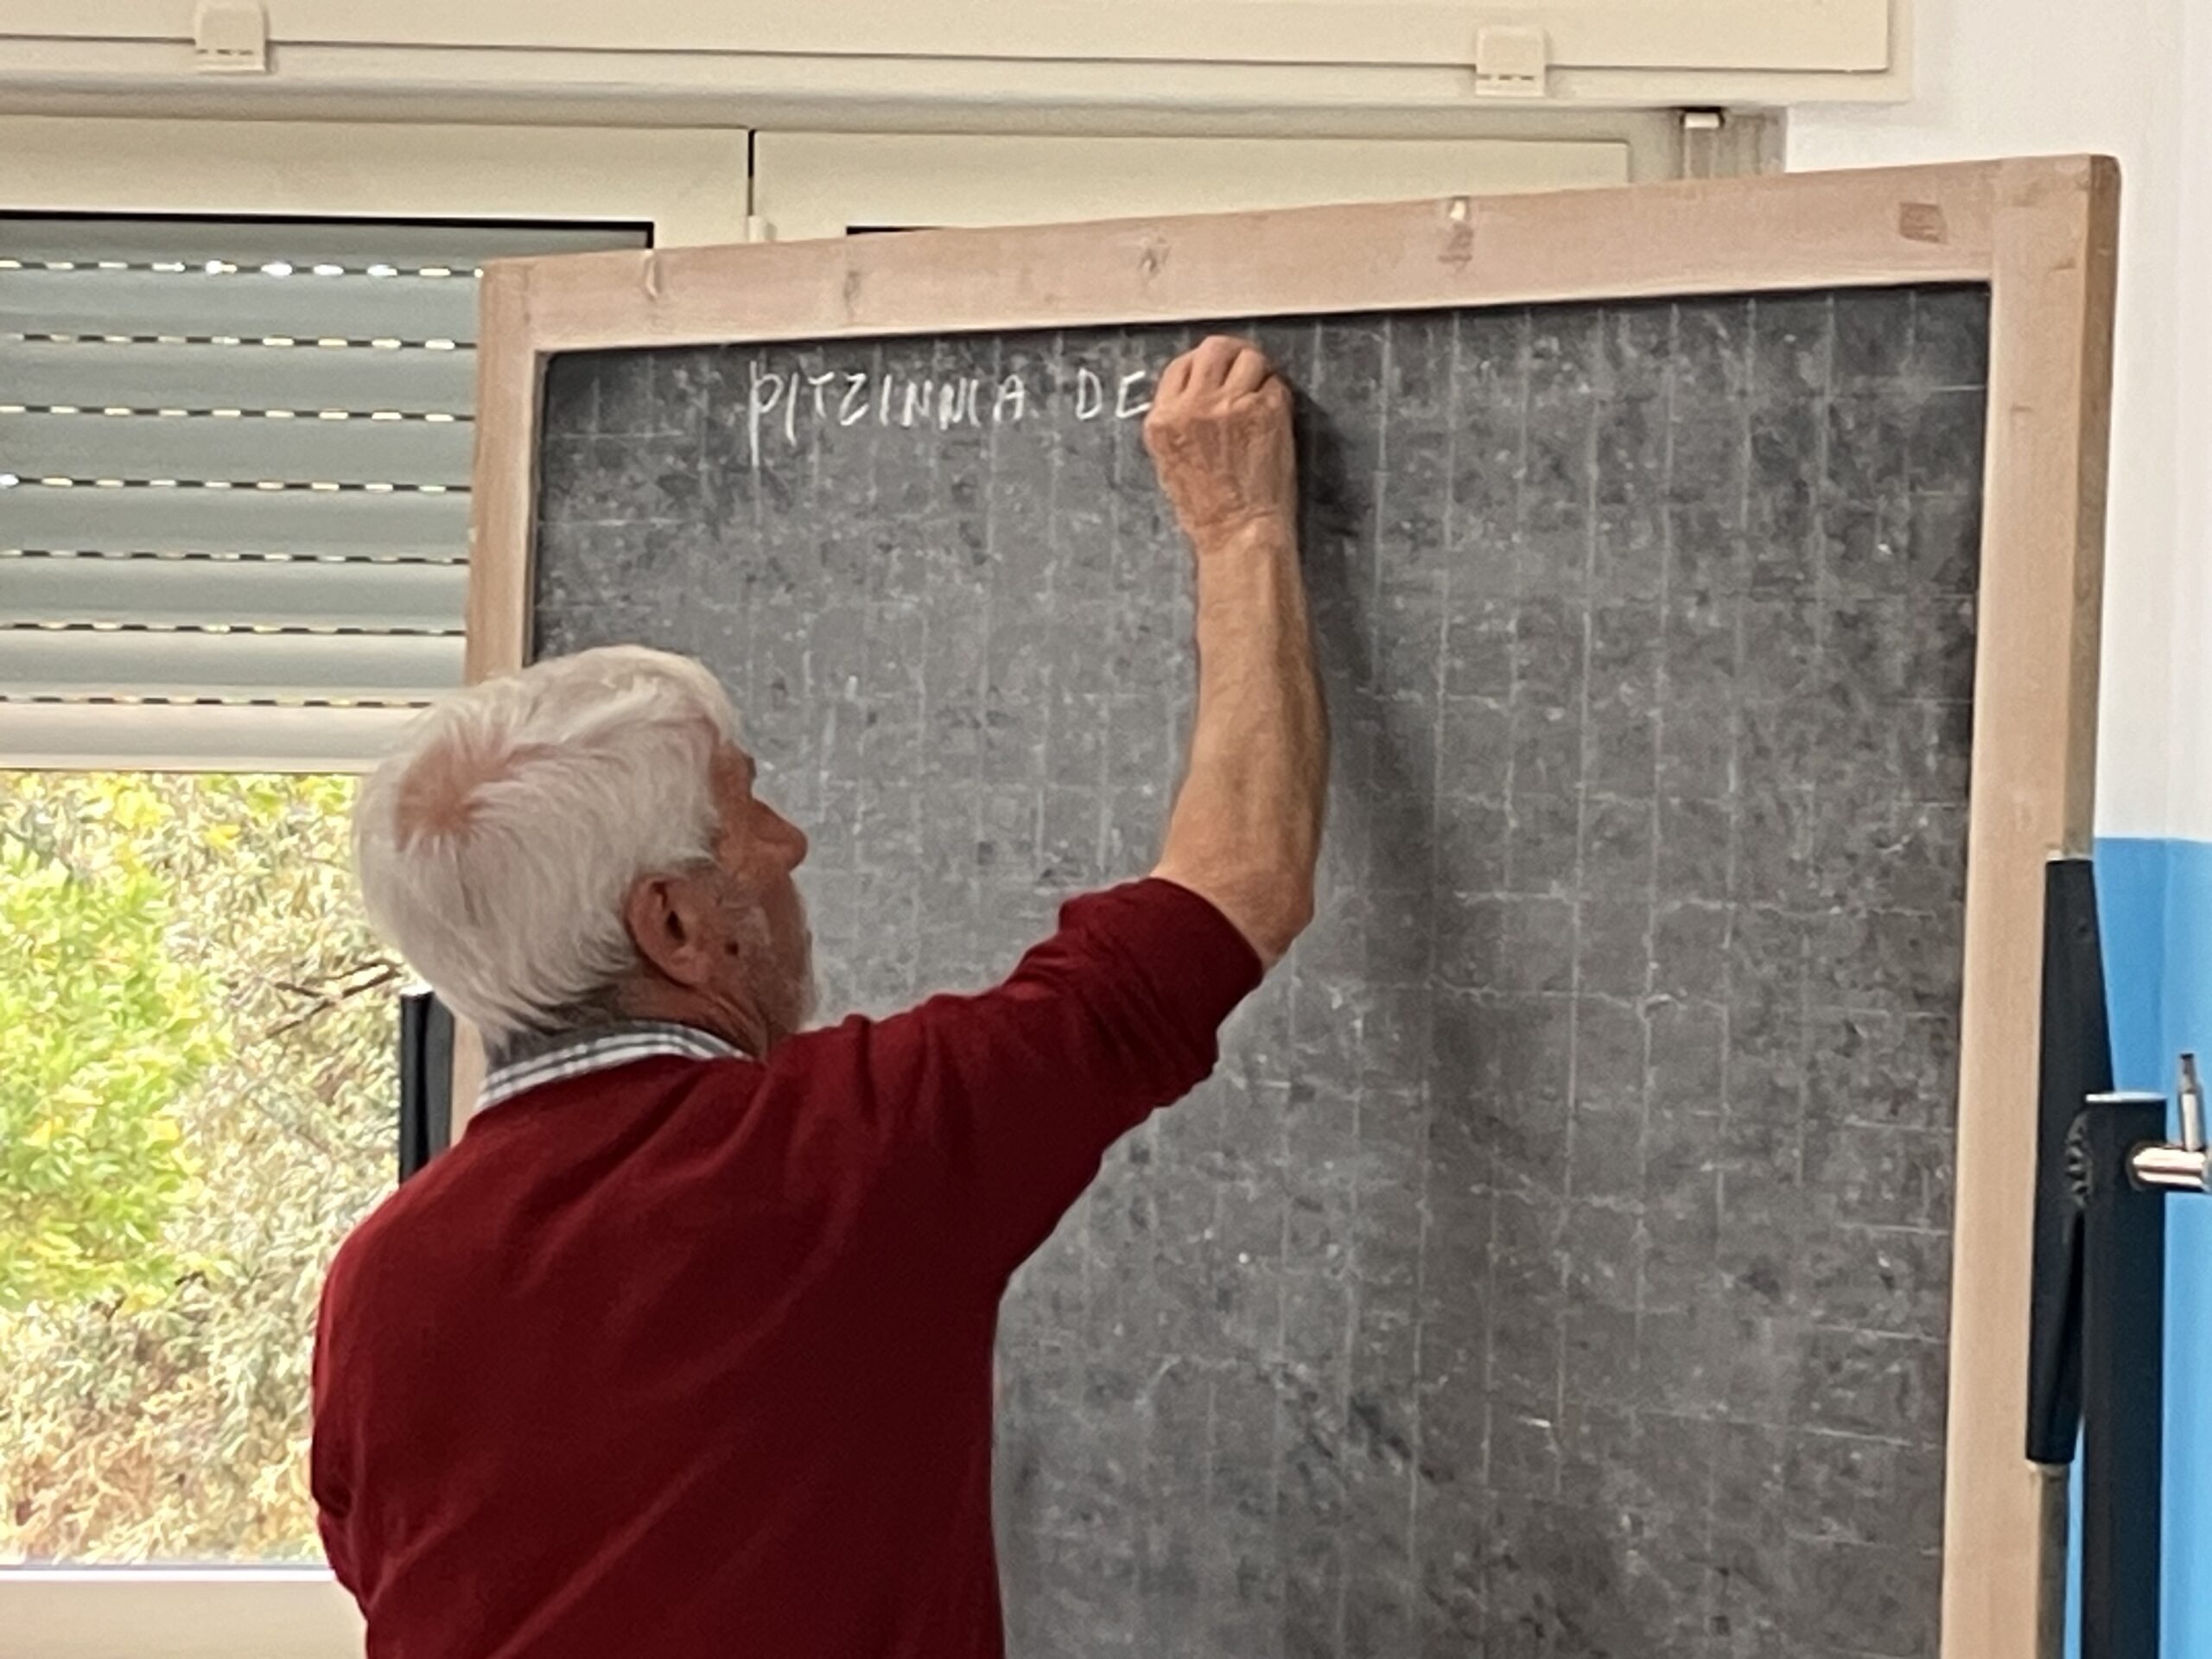 PITZINNIA DE